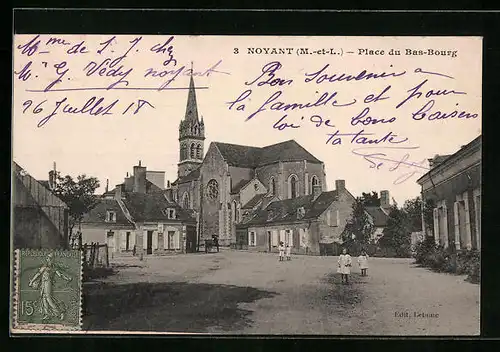 3 NOYANT (M.-et-L.) — Place du Bas-Bourg
Mme de S. J. chez
Mr G. Védy noyant
26 Juillet 18
Bon Souvenir a
la famille et pour
toi de bons baisers
ta tante
15c
Edit. Lebouc